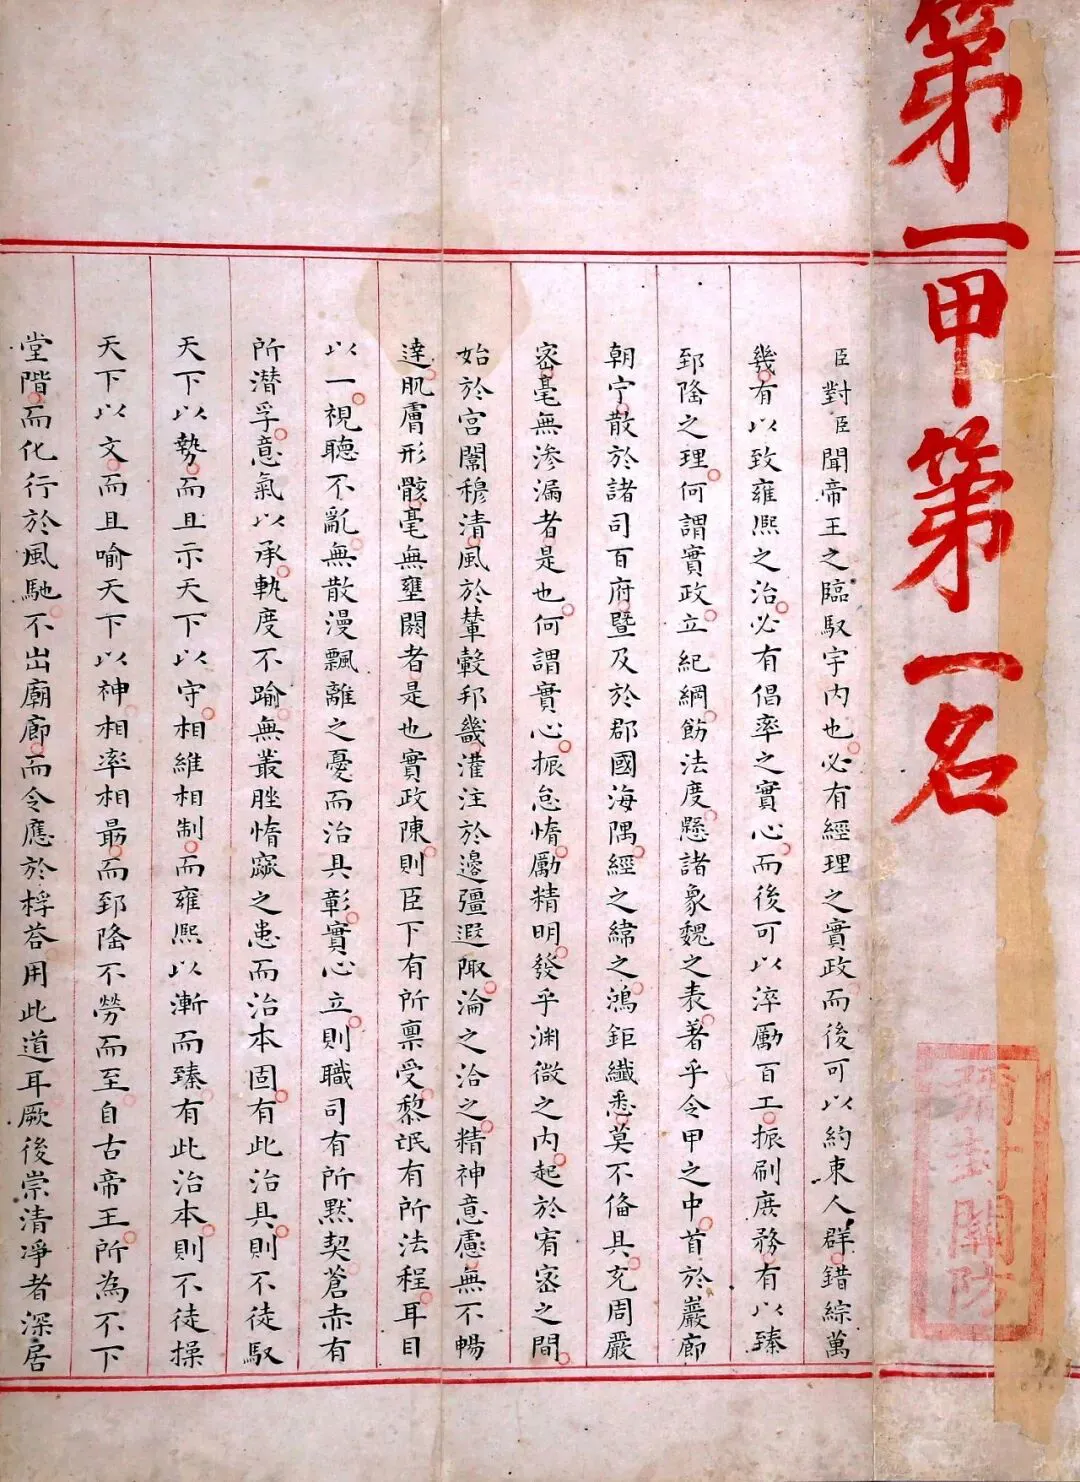 第一甲第一名
彌封關防
臣對臣聞帝王之臨馭宇内也必有經理之實政而後可以約束人群錯綜萬
幾有以致雍熙之治必有倡率之實心而後可以淬勵百工振刷庶務有以臻
郅隆之理何謂實政立紀綱飭法度懸諸象魏之表著乎令甲之中首於巖廊
朝宁散於諸司百府暨及於郡國海隅經之緯之鴻鉅纖悉莫不備具充周嚴
密毫無滲漏者是也何謂實心振怠惰勵精明發乎渊微之内起於宥密之間
始於宮闈穆清風於輦轂邦畿灌注於邊疆遐陬淪之洽之精神意慮無不暢
達肌膚形骸毫無壅閼者是也實政陳則臣下有所禀受黎氓有所法程耳目
以一視聽不亂無散漫飄離之憂而治具彰實心立則職司有所默契蒼赤有
所潛孚意氣以承軌度不踰無叢脞惰窳之患而治本固有此治具則不徒馭
天下以勢而且示天下以守相維相制而雍熙以漸而臻有此治本則不徒操
天下以文而且喻天下以神相率相朂而郅隆不勞而至自古帝王所為不下
堂階而化行於風馳不出廟廊而令應於桴荅用此道耳厥後崇清淨者深居